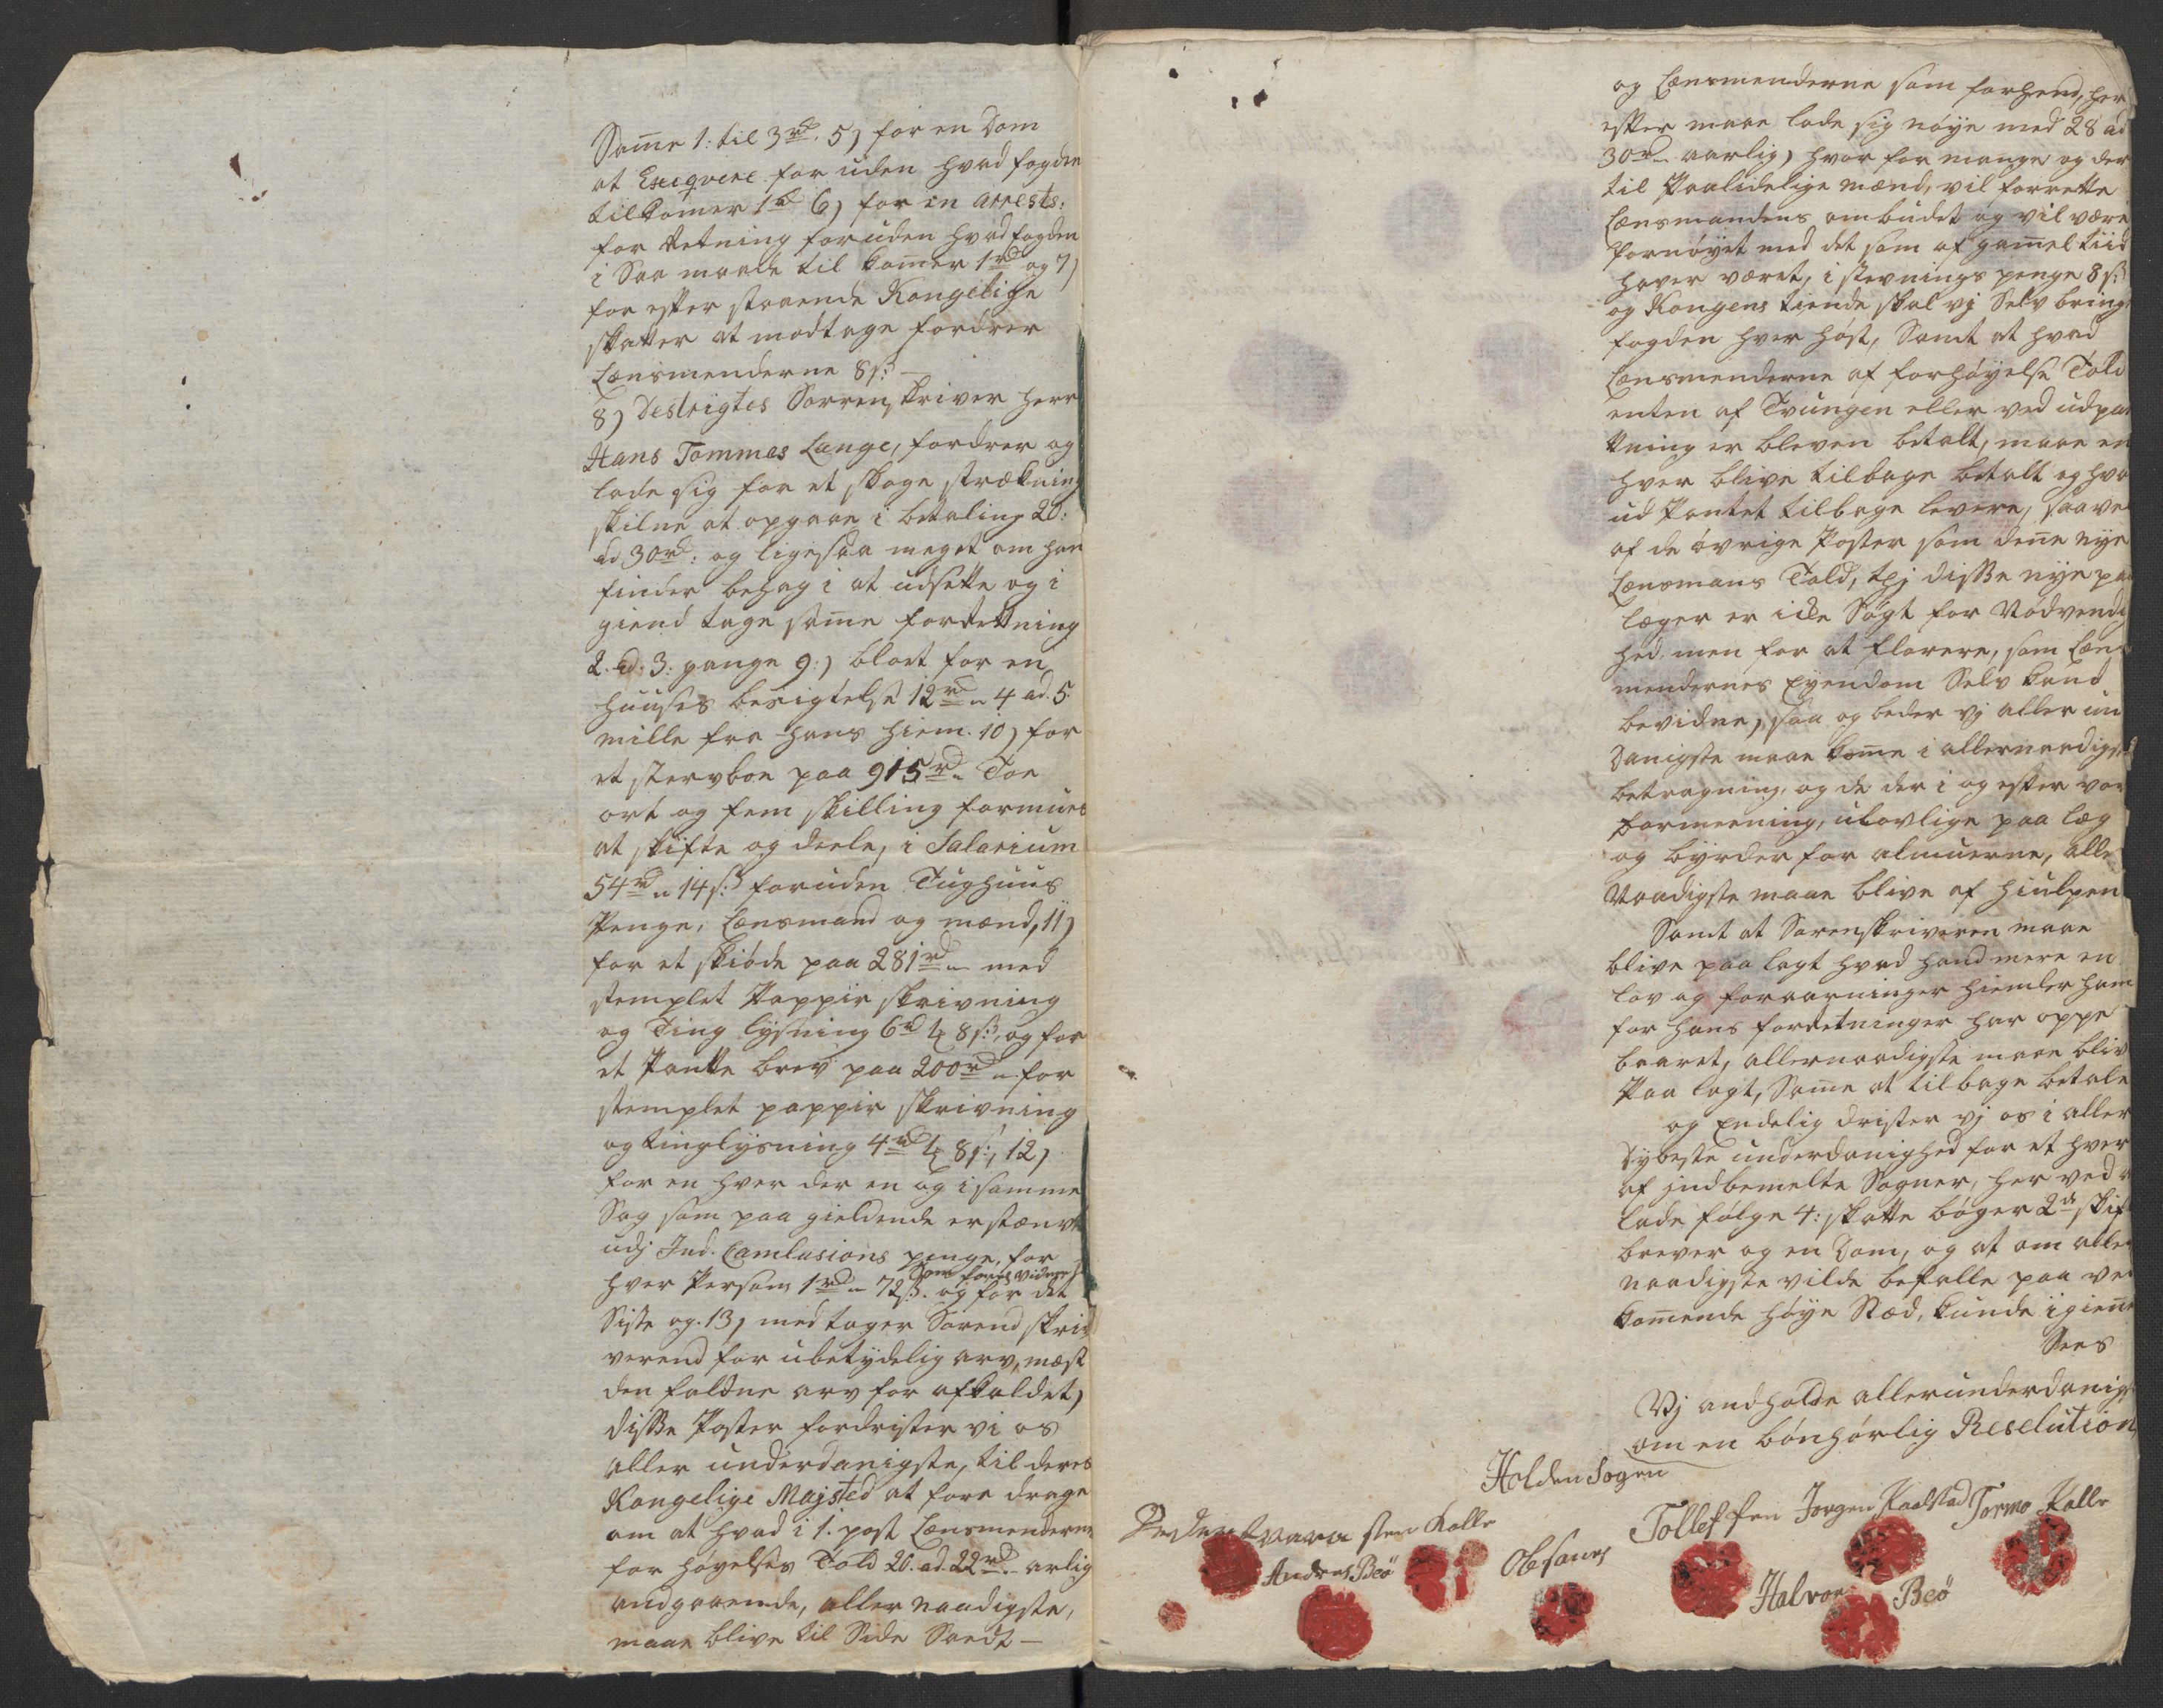 Same 1: til 3rd. 5) for en Dom
at Exeqvere for uden hvad fogden
tilkomer 1rd 6) for en Arrests:
for Retning foruden hvad fogden
i Saa maade til komer 1rd og 7)
for efter staaende Kongelige
skatter at modtage fordrer
Lænsmenderne 8s:
8) Destrigtes Sorrenskriver Herr
Hans Tommas Lange, fordrer og
lade sig for et skoge strækning
skilne at opgaae i betaling 20:
ad 30rd: og ligesaa meget om han
finder behag i at udsætte og i
giend tage same forretning
2. ad. 3. gange 9:) blot for en
huuses besigtelse 12rd 4 ad. 5.
mille fra hans hiem. 10) for
et stervboe paa 915rd Toe
ort og fem skilling formues
at skifte og deele, i Salarium
54rd 14s: foruden Tughuus
Penge, Lænsmand og mænd, 11)
for et skiøde paa 281rd med
stemplet Pappir skrivning
og Ting lysning 6rd 8s:, og for
et Pante brev paa 200rd for
stemplet pappir skrivning
og tinglysning 4rd 8s:, 12)
for en hver der en og i samme
Sag som paa gieldende er stævnt
udj Ind. Camlusions penge, for
hver Person 1rd 72s. og for det
som føres vidner
Siste og. 13) med tager Sorend skri
verend for ubetydelig arv, mæst
den faldne arv for afkaldet,
disse Poster fordrister vi os
aller underdanigste, til deres
Kongelige Majsted at fore drage
om at hvad i 1. post Lænsmenderne
for høyelses Told 20. ad. 22rd. arlig
andgaaende, aller naadigste,
maae blive til Side Sædt
og Lænsmenderne som forhend, her
efter maae lade sig nøye med 28 ad
30rd aarlig) hvor for mange og der
til Paalidelige mænd, vil forrette
Lænsmandens ombudet og vil være
fornøyet med det som af gamel tiid
haver været, i stevnings penge 8s:
og Kongens tiende skal vj Selv bringe
fogden hver høst, Samt at hvad
Lænsmenderne af forhøyelse Told
enten af Tvungen eller ved udpan
tning er bleven betalt, maae en
hver blive tilbage betalt og hva
ud Pantet tilbage levere, saa vel
af de øvrige Poster som dene nye
Lænsmans Told, thj disse nye paa
læger er icke Søgt for Nødvendig
hed, men for at florere, som Læns
mendernes Eyendom Selv kand
bevidne, saa og beder vj aller un
danigste maae kome i allernaadigste
betragning, og de der i og efter vor
formeening, ulovlige paa læg
og byrder for almuerne, aller
Naadigste maae blive af hiulpen
Samt at Sorenskriveren maae
blive paa lagt hvad hand mere en
lov og foraarninger hiemler ham
for hans forretninger har oppe
baaret, allernaadigste maae blive
Paa lagt, Same at tilbage betale
og Endelig drister vj os i aller
dybeste underdanighed for et hver
af Indbemelte Sogner, her ved at
lade følge 4: skatte bøger 2de skifte
brever og en Dom, og at om aller
naadigste vilde befalle paa ved
komende høye Sted, kunde igiene
Sees
Vj andholde allerunderdanigste
om en bønhørlig Reselution
Holden Sogen
Peder sten Kolle
Andres Beö
Ole saues
Tollef fen Jorgen Kaalstad Tormo Kalle
Halvor Beö